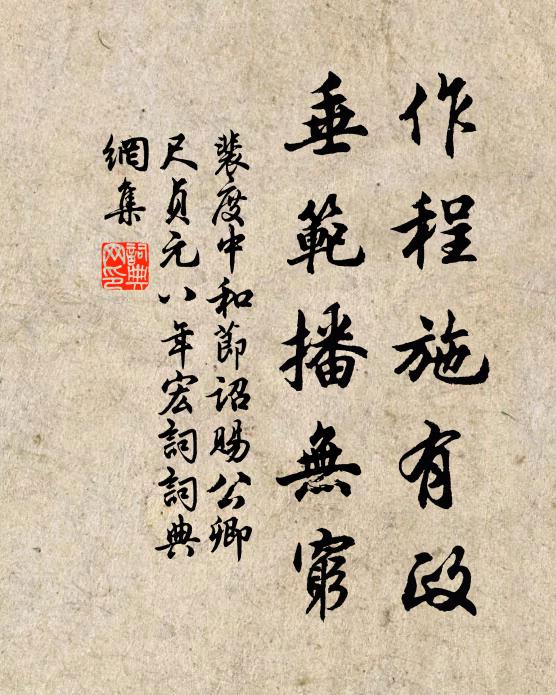 作程施有政
垂範播無窮
裴度中和節詔賜公卿
尺貞元八年宏詞詞典
網集
詞典
网印